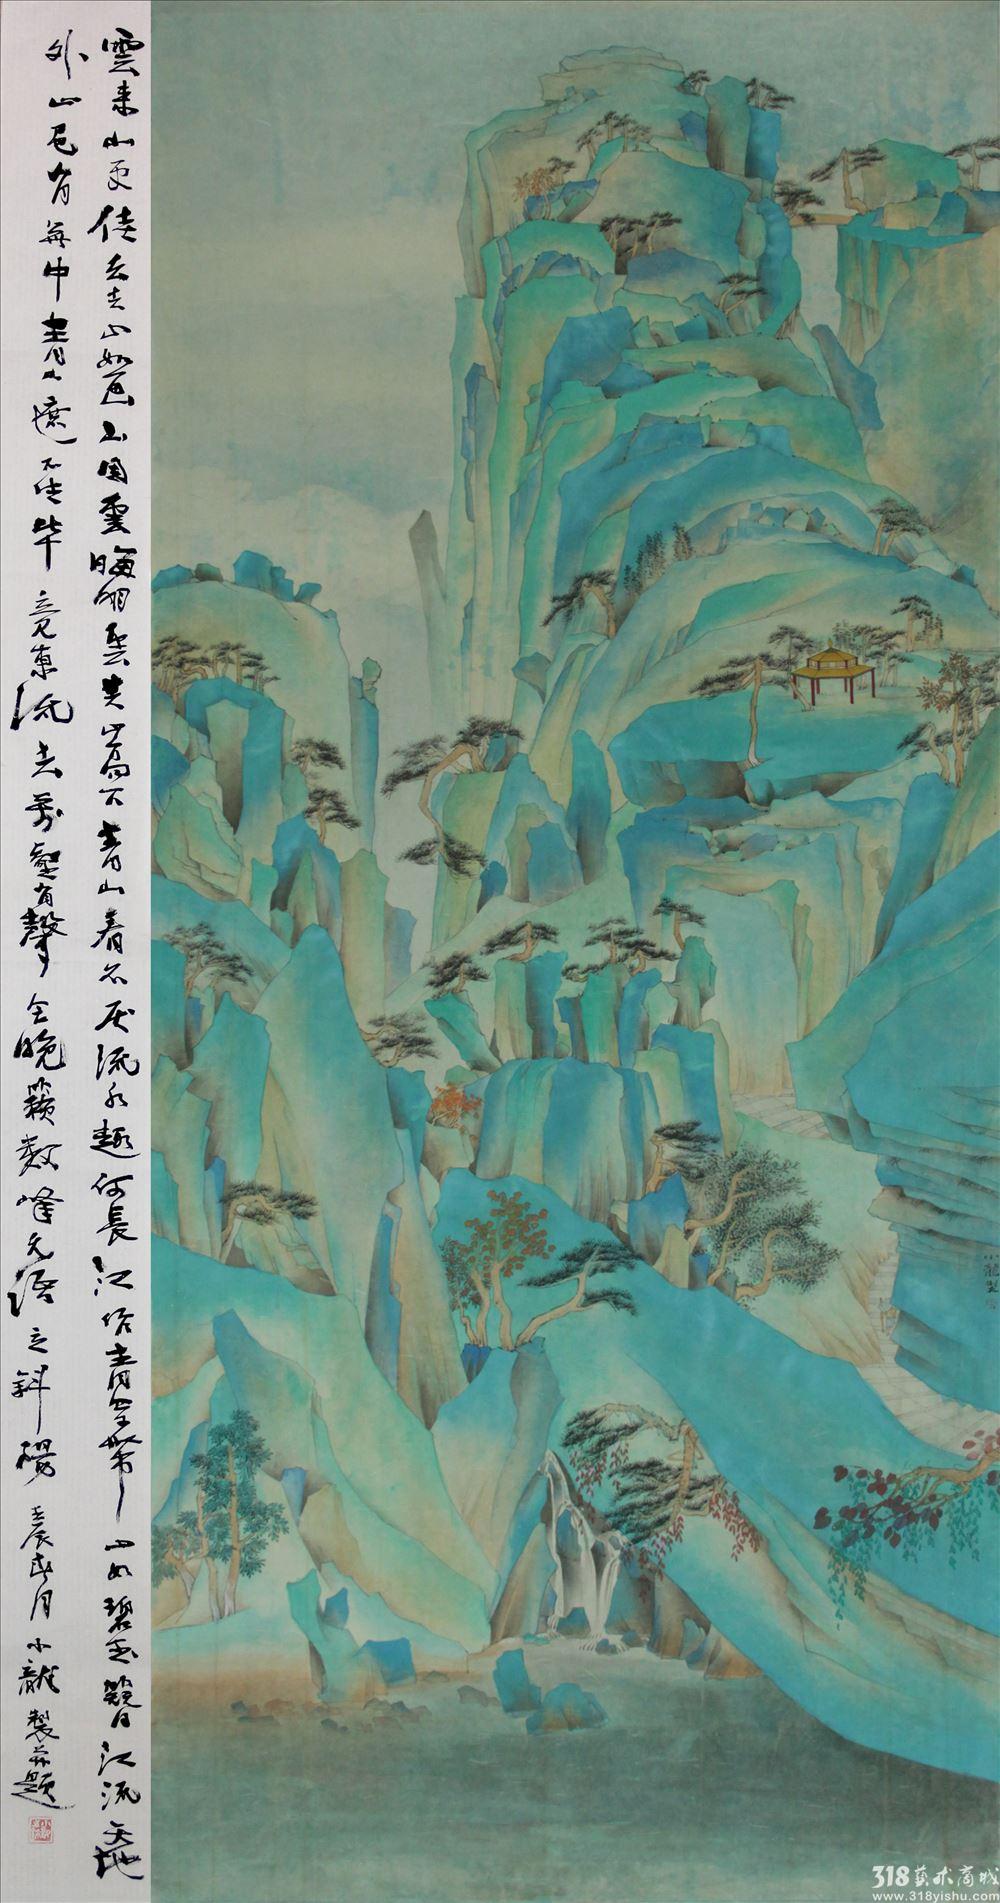 雲来山更佳去去山如画山因雲晦明雲共山高下青山看不厌流水趣何長江作青羅带山如碧玉簪江流天地
外山色有無中青山遮不住毕竟東流去萬壑有聲含晚籁数峰无语立斜陽壬辰春月小龍製并題
小龍製
318艺术商城
www.318yishu.com